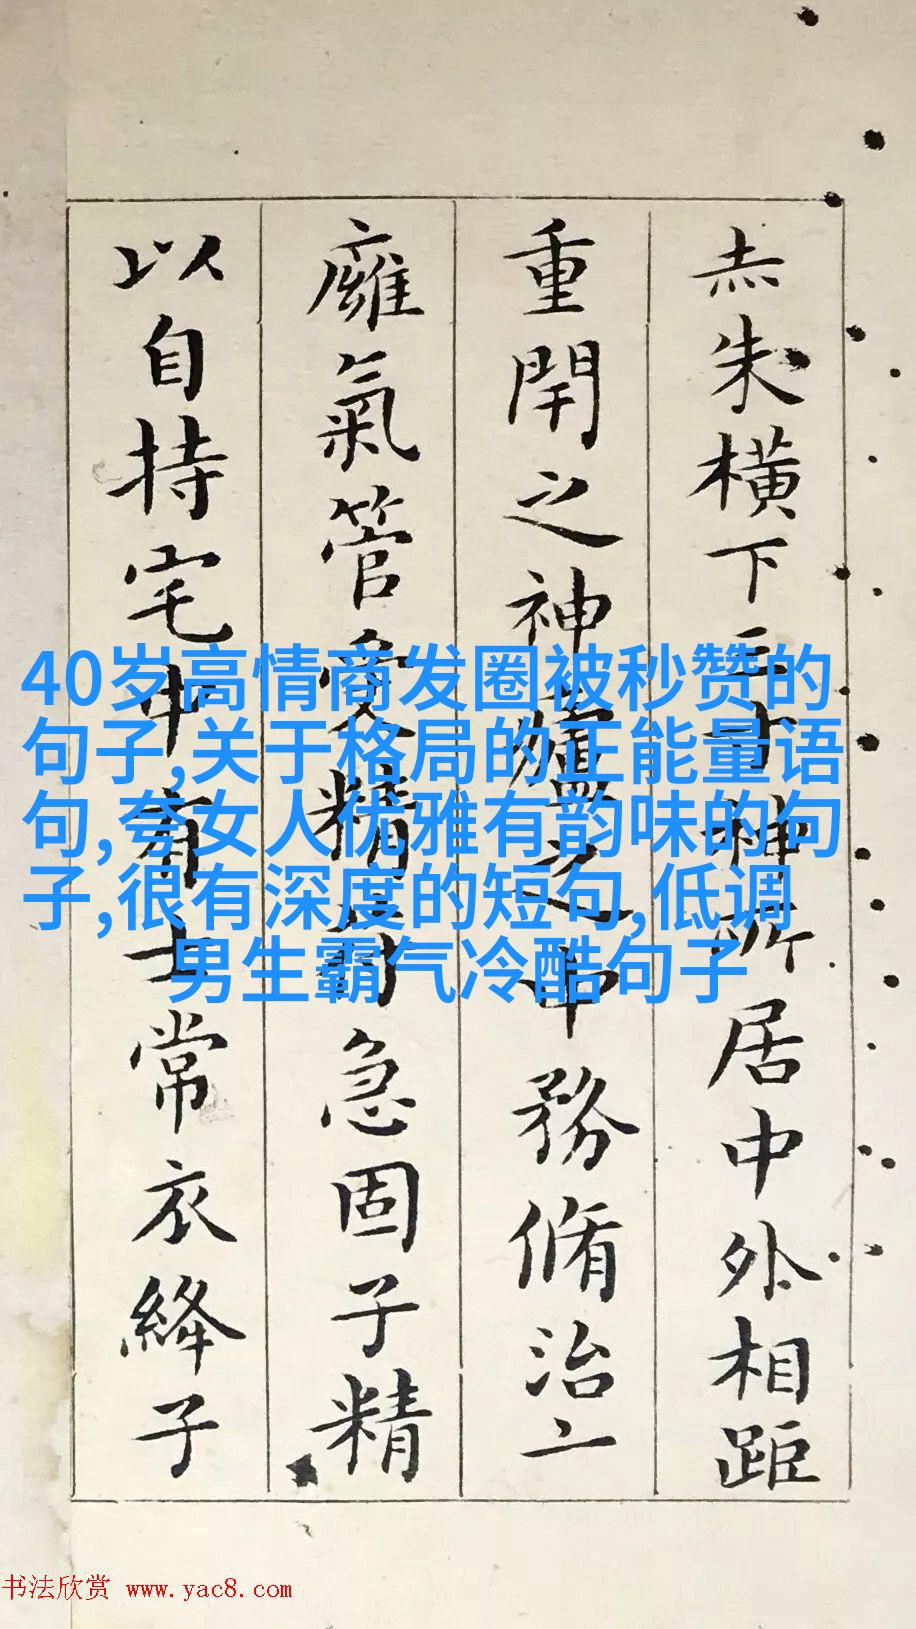 40岁高情商发圈被秒赞的
句子,关于格局的正能量语
句,夸女人优雅有韵味的句
子,很有深度的短句,低调
男生霸气冷酷句子
赤朱橫下三寸神所居中外相距
重閇之神廬之中務脩治
廱氣管受精苻急固子精
以自持宅中有士常衣絳子
书法欣赏 www.yac8.com